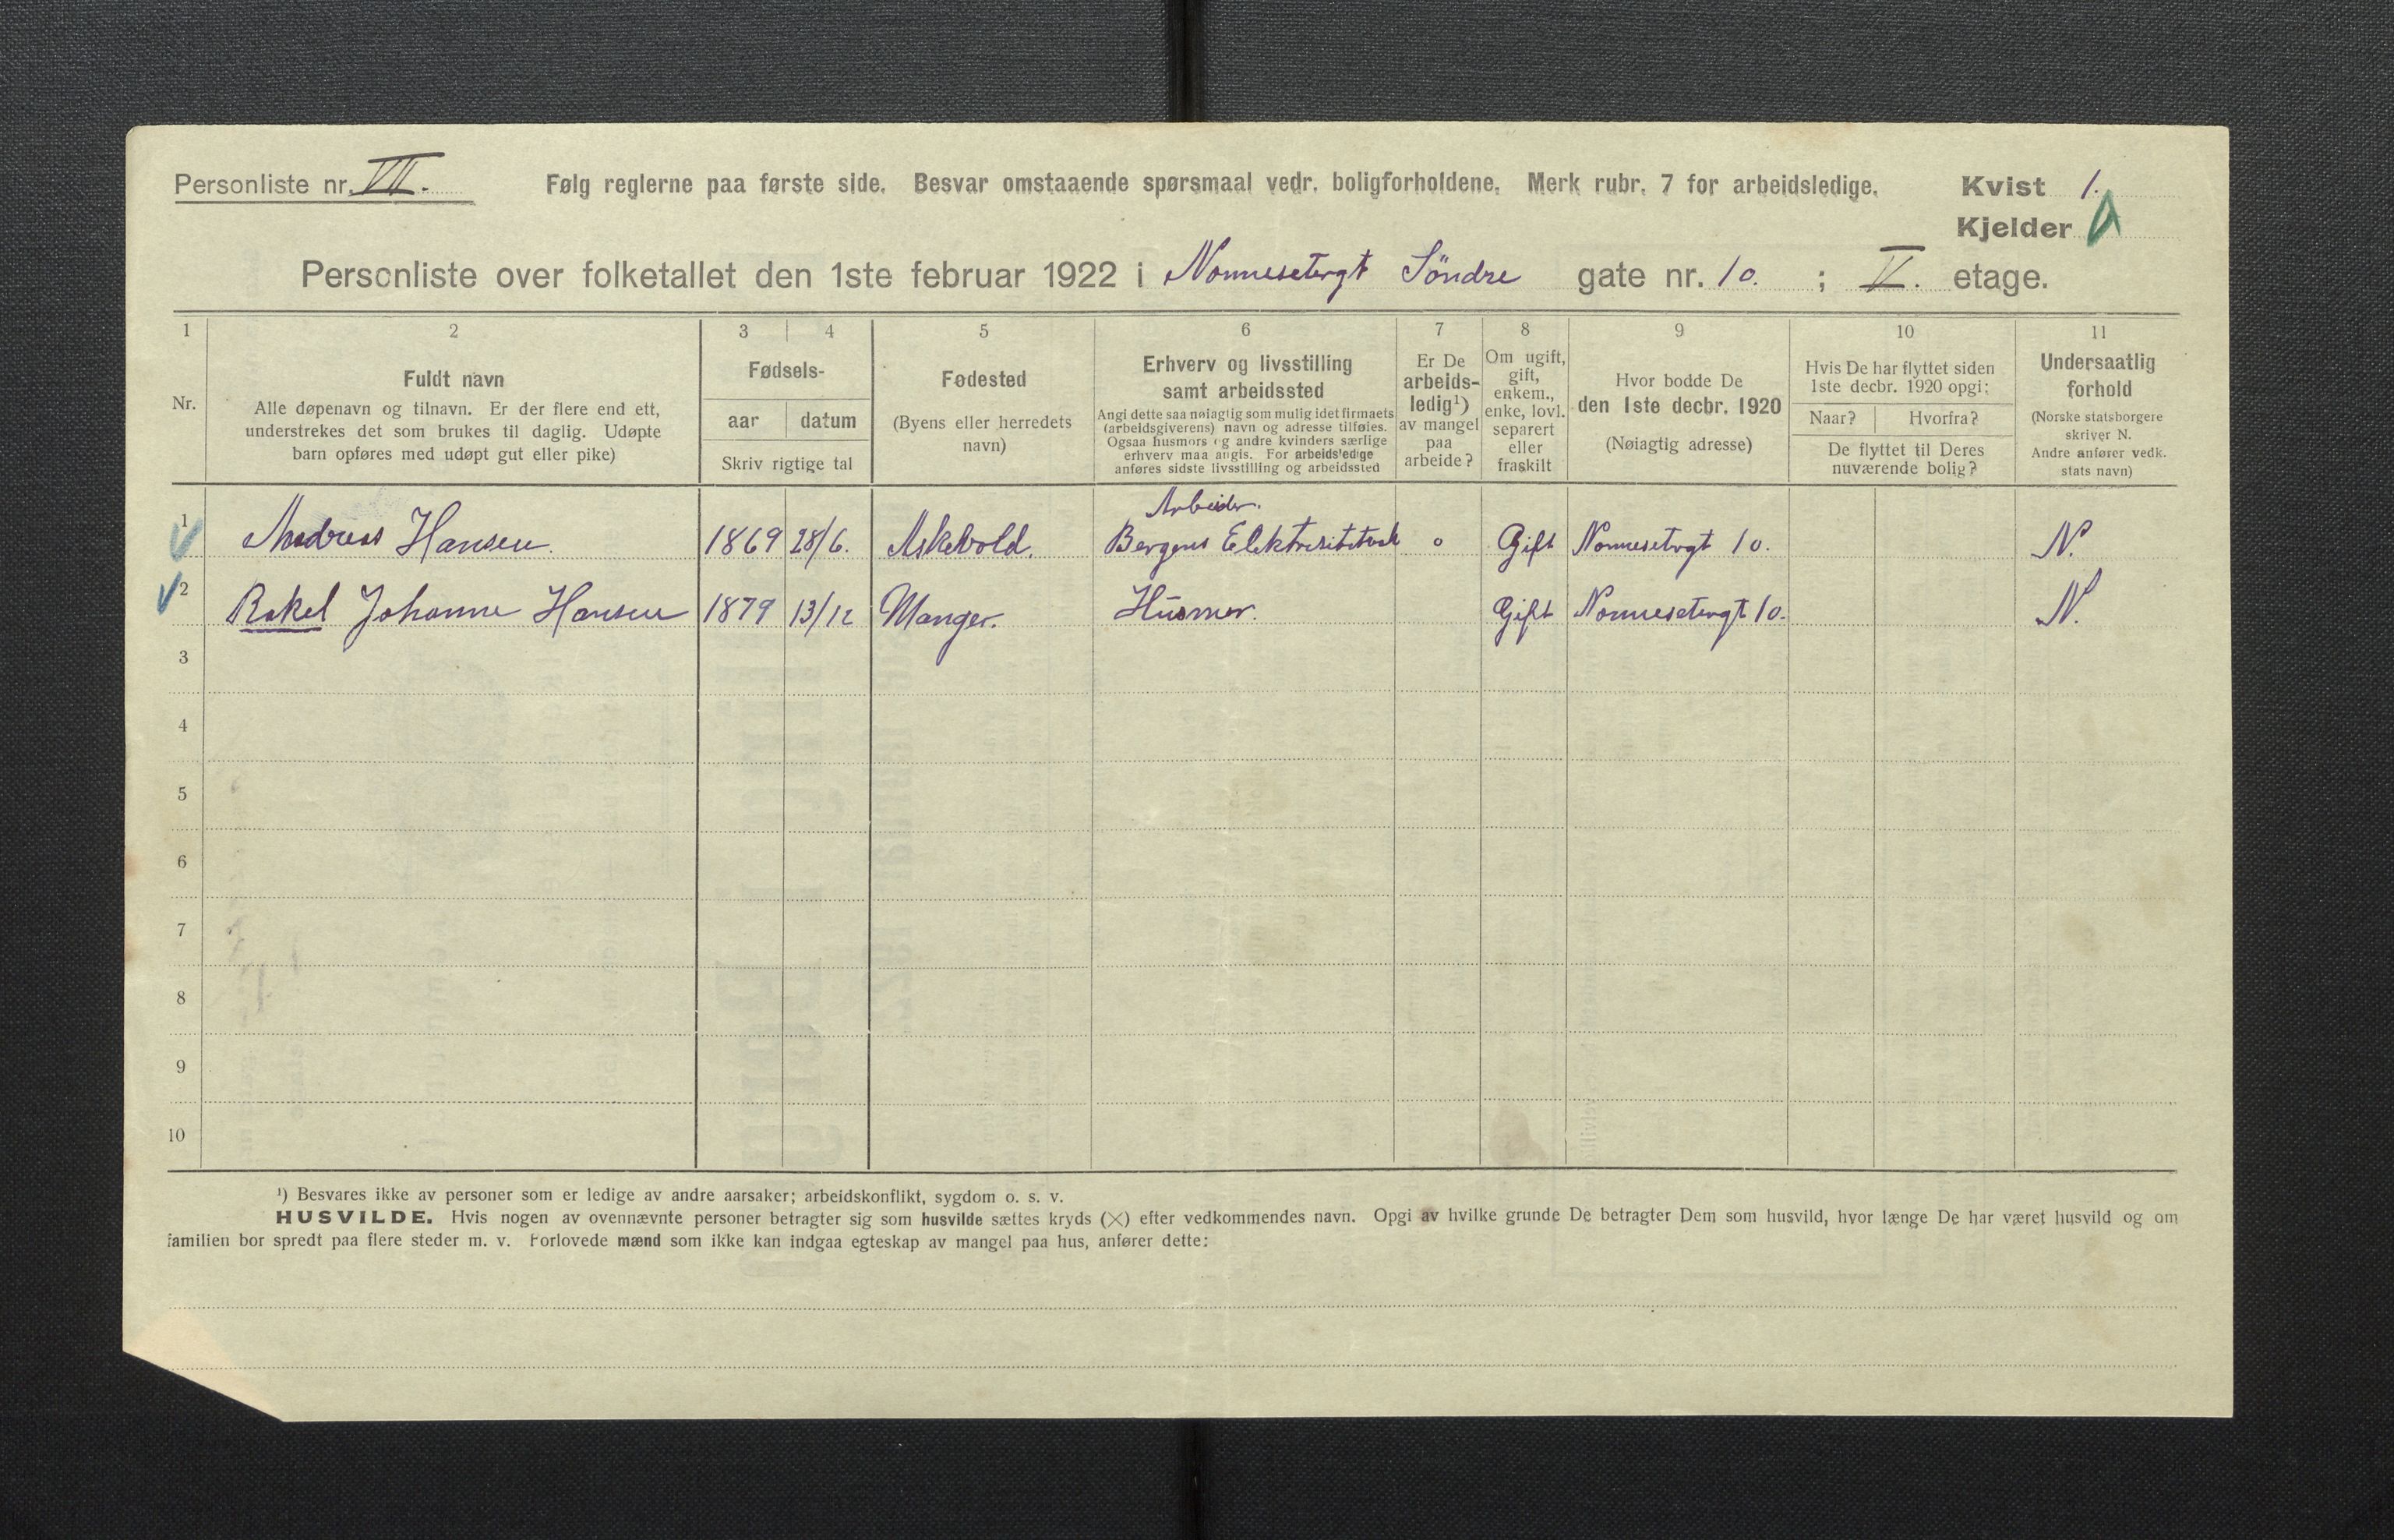 Personliste nr. VII. Følg reglerne paa første side. Besvar omstaaende spørsmaal vedr. boligforholdene. Merk rubr. 7 for arbeidsledige. Kvist 1.
Kjelder
Personliste over folketallet den 1ste februar 1922 i Nonnesetergt Söndre gate nr. 10. ; V. etage.
1 2 3 4 5 6 7 8 9 10 11
Nr.
Fuldt navn
Alle døpenavn og tilnavn. Er der flere end ett,
understrekes det som brukes til daglig. Udøpte
barn opføres med udøpt gut eller pike)
Fødsels-
aar datum
Skriv rigtige tal
Fødested
(Byens eller herredets
navn)
Erhverv og livsstilling
samt arbeidssted
Angi dette saa nøiagtig som mulig idet firmaets
(arbeidsgiverens) navn og adresse tilføies.
Ogsaa husmors og andre kvinders særlige
erhverv maa angis. For arbeidsledige
anføres sidste livsstilling og arbeidssted
Er De
arbeids-
ledig¹)
av mangel
paa
arbeide?
Om ugift,
gift,
enkem.,
enke, lovl.
separert
eller
fraskilt
Hvor bodde De
den 1ste decbr. 1920
(Nøiagtig adresse)
Hvis De har flyttet siden
1ste decbr. 1920 opgi:
Naar? Hvorfra?
De flyttet til Deres
nuværende bolig?
Undersaatlig
forhold
(Norske statsborgere
skriver N.
Andre anfører vedk.
stats navn)
Arbeider.
1 Andreas Hansen. 1869 28/6. Askevold. Bergens Elektrisitetsvk o Gift Nonnesetergt 10. N.
2 Rakel Johanne Hansen 1879 13/12 Manger. Husmor. Gift Nonnesetergt 10. N.
3
4
5
6
7
8
9
10
¹) Besvares ikke av personer som er ledige av andre aarsaker; arbeidskonflikt, sygdom o. s. v.
HUSVILDE. Hvis nogen av ovennævnte personer betragter sig som husvilde sættes kryds (×) efter vedkommendes navn. Opgi av hvilke grunde De betragter Dem som husvild, hvor længe De har været husvild og om
familien bor spredt paa flere steder m. v. Forlovede mænd som ikke kan indgaa egteskap av mangel paa hus, anfører dette: